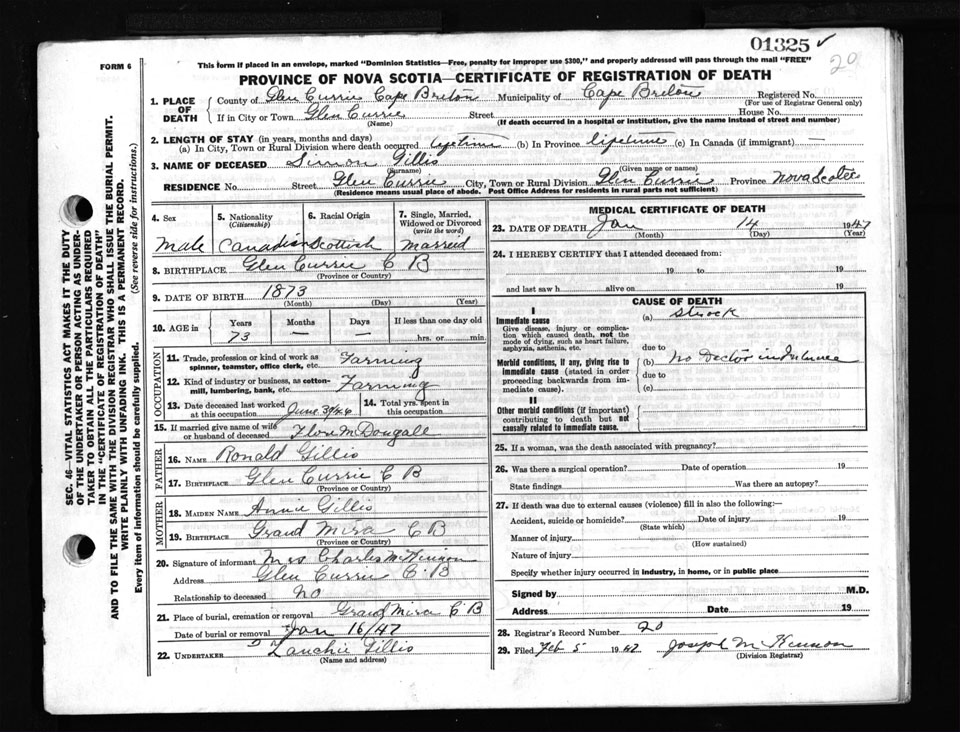 01325 ✓
20
FORM 6
This form if placed in an envelope, marked "Dominion Statistics—Free, penalty for improper use $300," and properly addressed will pass through the mail "FREE"
PROVINCE OF NOVA SCOTIA—CERTIFICATE OF REGISTRATION OF DEATH
1. PLACE OF DEATH County of Glen Currie Cape Breton Municipality of Cape Breton Registered No.
(For use of Registrar General only)
If in City or Town Glen Currie Street House No.
(Name) (If death occurred in a hospital or institution, give the name instead of street and number)
2. LENGTH OF STAY (in years, months and days)
(a) In City, Town or Rural Division where death occurred lifetime (b) In Province lifetime (c) In Canada (if immigrant) —
3. NAME OF DECEASED Simon Gillis
(Surname) (Given name or names)
RESIDENCE No Street Glen Currie City, Town or Rural Division Glen Currie Province Nova Scotia
(Residence means usual place of abode. Post Office Address for residents in rural parts not sufficient)
SEC. 46—VITAL STATISTICS ACT MAKES IT THE DUTY
OF THE UNDERTAKER OR PERSON ACTING AS UNDER-
TAKER TO OBTAIN ALL THE PARTICULARS REQUIRED
IN THE "CERTIFICATE OF REGISTRATION OF DEATH"
AND TO FILE THE SAME WITH THE DIVISION REGISTRAR WHO SHALL ISSUE THE BURIAL PERMIT.
WRITE PLAINLY WITH UNFADING INK. THIS IS A PERMANENT RECORD.
Every item of information should be carefully supplied. (See reverse side for instructions.)
4. Sex 5. Nationality (Citizenship) 6. Racial Origin 7. Single, Married, Widowed or Divorced (write the word)
Male Canadian Scottish Marreid
8. BIRTHPLACE Glen Currie C B
(Province or Country)
9. DATE OF BIRTH 1873
(Month) (Day) (Year)
10. AGE in Years Months Days If less than one day old
73 — — hrs. or min.
OCCUPATION
11. Trade, profession or kind of work as spinner, teamster, office clerk, etc. Farming
12. Kind of industry or business, as cotton-mill, lumbering, bank, etc. Farming
13. Date deceased last worked at this occupation June 3 1946 14. Total yrs. spent in this occupation
15. If married give name of wife or husband of deceased Flora McDougall
FATHER
16. NAME Ronald Gillis
17. BIRTHPLACE Glen Currie C B
(Province or Country)
MOTHER
18. MAIDEN NAME Annie Gillis
19. BIRTHPLACE Grand Mira C B
(Province or Country)
20. Signature of informant Mrs Charles McKinnon
Address Glen Currie C B
Relationship to deceased No
21. Place of burial, cremation or removal Grand Mira C B
Date of burial or removal Jan 16/47
22. UNDERTAKER Gillis
(Name and address)
MEDICAL CERTIFICATE OF DEATH
23. DATE OF DEATH Jan 14 1947
(Month) (Day) (Year)
24. I HEREBY CERTIFY that I attended deceased from:
19 to 19
and last saw h alive on 19
CAUSE OF DEATH
I
Immediate cause (a) Struck
Give disease, injury or complication which caused death, not the mode of dying, such as heart failure, asphyxia, asthenia, etc.
due to
Morbid conditions, if any, giving rise to immediate cause (stated in order proceeding backwards from immediate cause). (b) No Doctor in
due to
(c)
II
Other morbid conditions (if important) contributing to death but not causally related to immediate cause.
25. If a woman, was the death associated with pregnancy?
26. Was there a surgical operation? Date of operation 19
State findings Was there an autopsy?
27. If death was due to external causes (violence) fill in also the following:—
Accident, suicide or homicide? Date of injury 19
(State which)
Manner of injury
(How sustained)
Nature of injury
Specify whether injury occurred in industry, in home, or in public place
Signed by M.D.
Address Date 19
28. Registrar's Record Number 20
29. Filed Feb 5 1947 Joseph McKinnon
(Division Registrar)